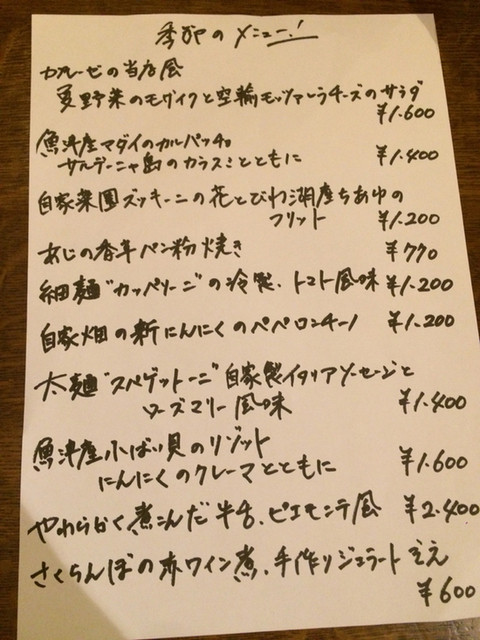 季節のメニュー!
カプレーゼの当店風
夏野菜のモザイクと空輸モッツァレラチーズのサラダ
¥1.600
魚津産マダイのカルパッチョ
サルデーニャ島のカラスミとともに ¥1.400
自家菜園ズッキーニの花とびわ湖産ちあゆの
フリット ¥1.200
あじの香草パン粉焼き ¥770
細麺"カッペリーニ"の冷製、トマト風味 ¥1.200
自家畑の新にんにくのペペロンチーノ ¥1.200
太麺"スパゲットーニ"自家製イタリアソーセージと
ローズマリー風味 ¥1.400
魚津産小ばい貝のリゾット
にんにくのクレーマとともに ¥1.600
やわらかく煮こんだ牛舌、ピエモンテ風 ¥2.400
さくらんぼの赤ワイン煮、手作りジェラート添え
¥600